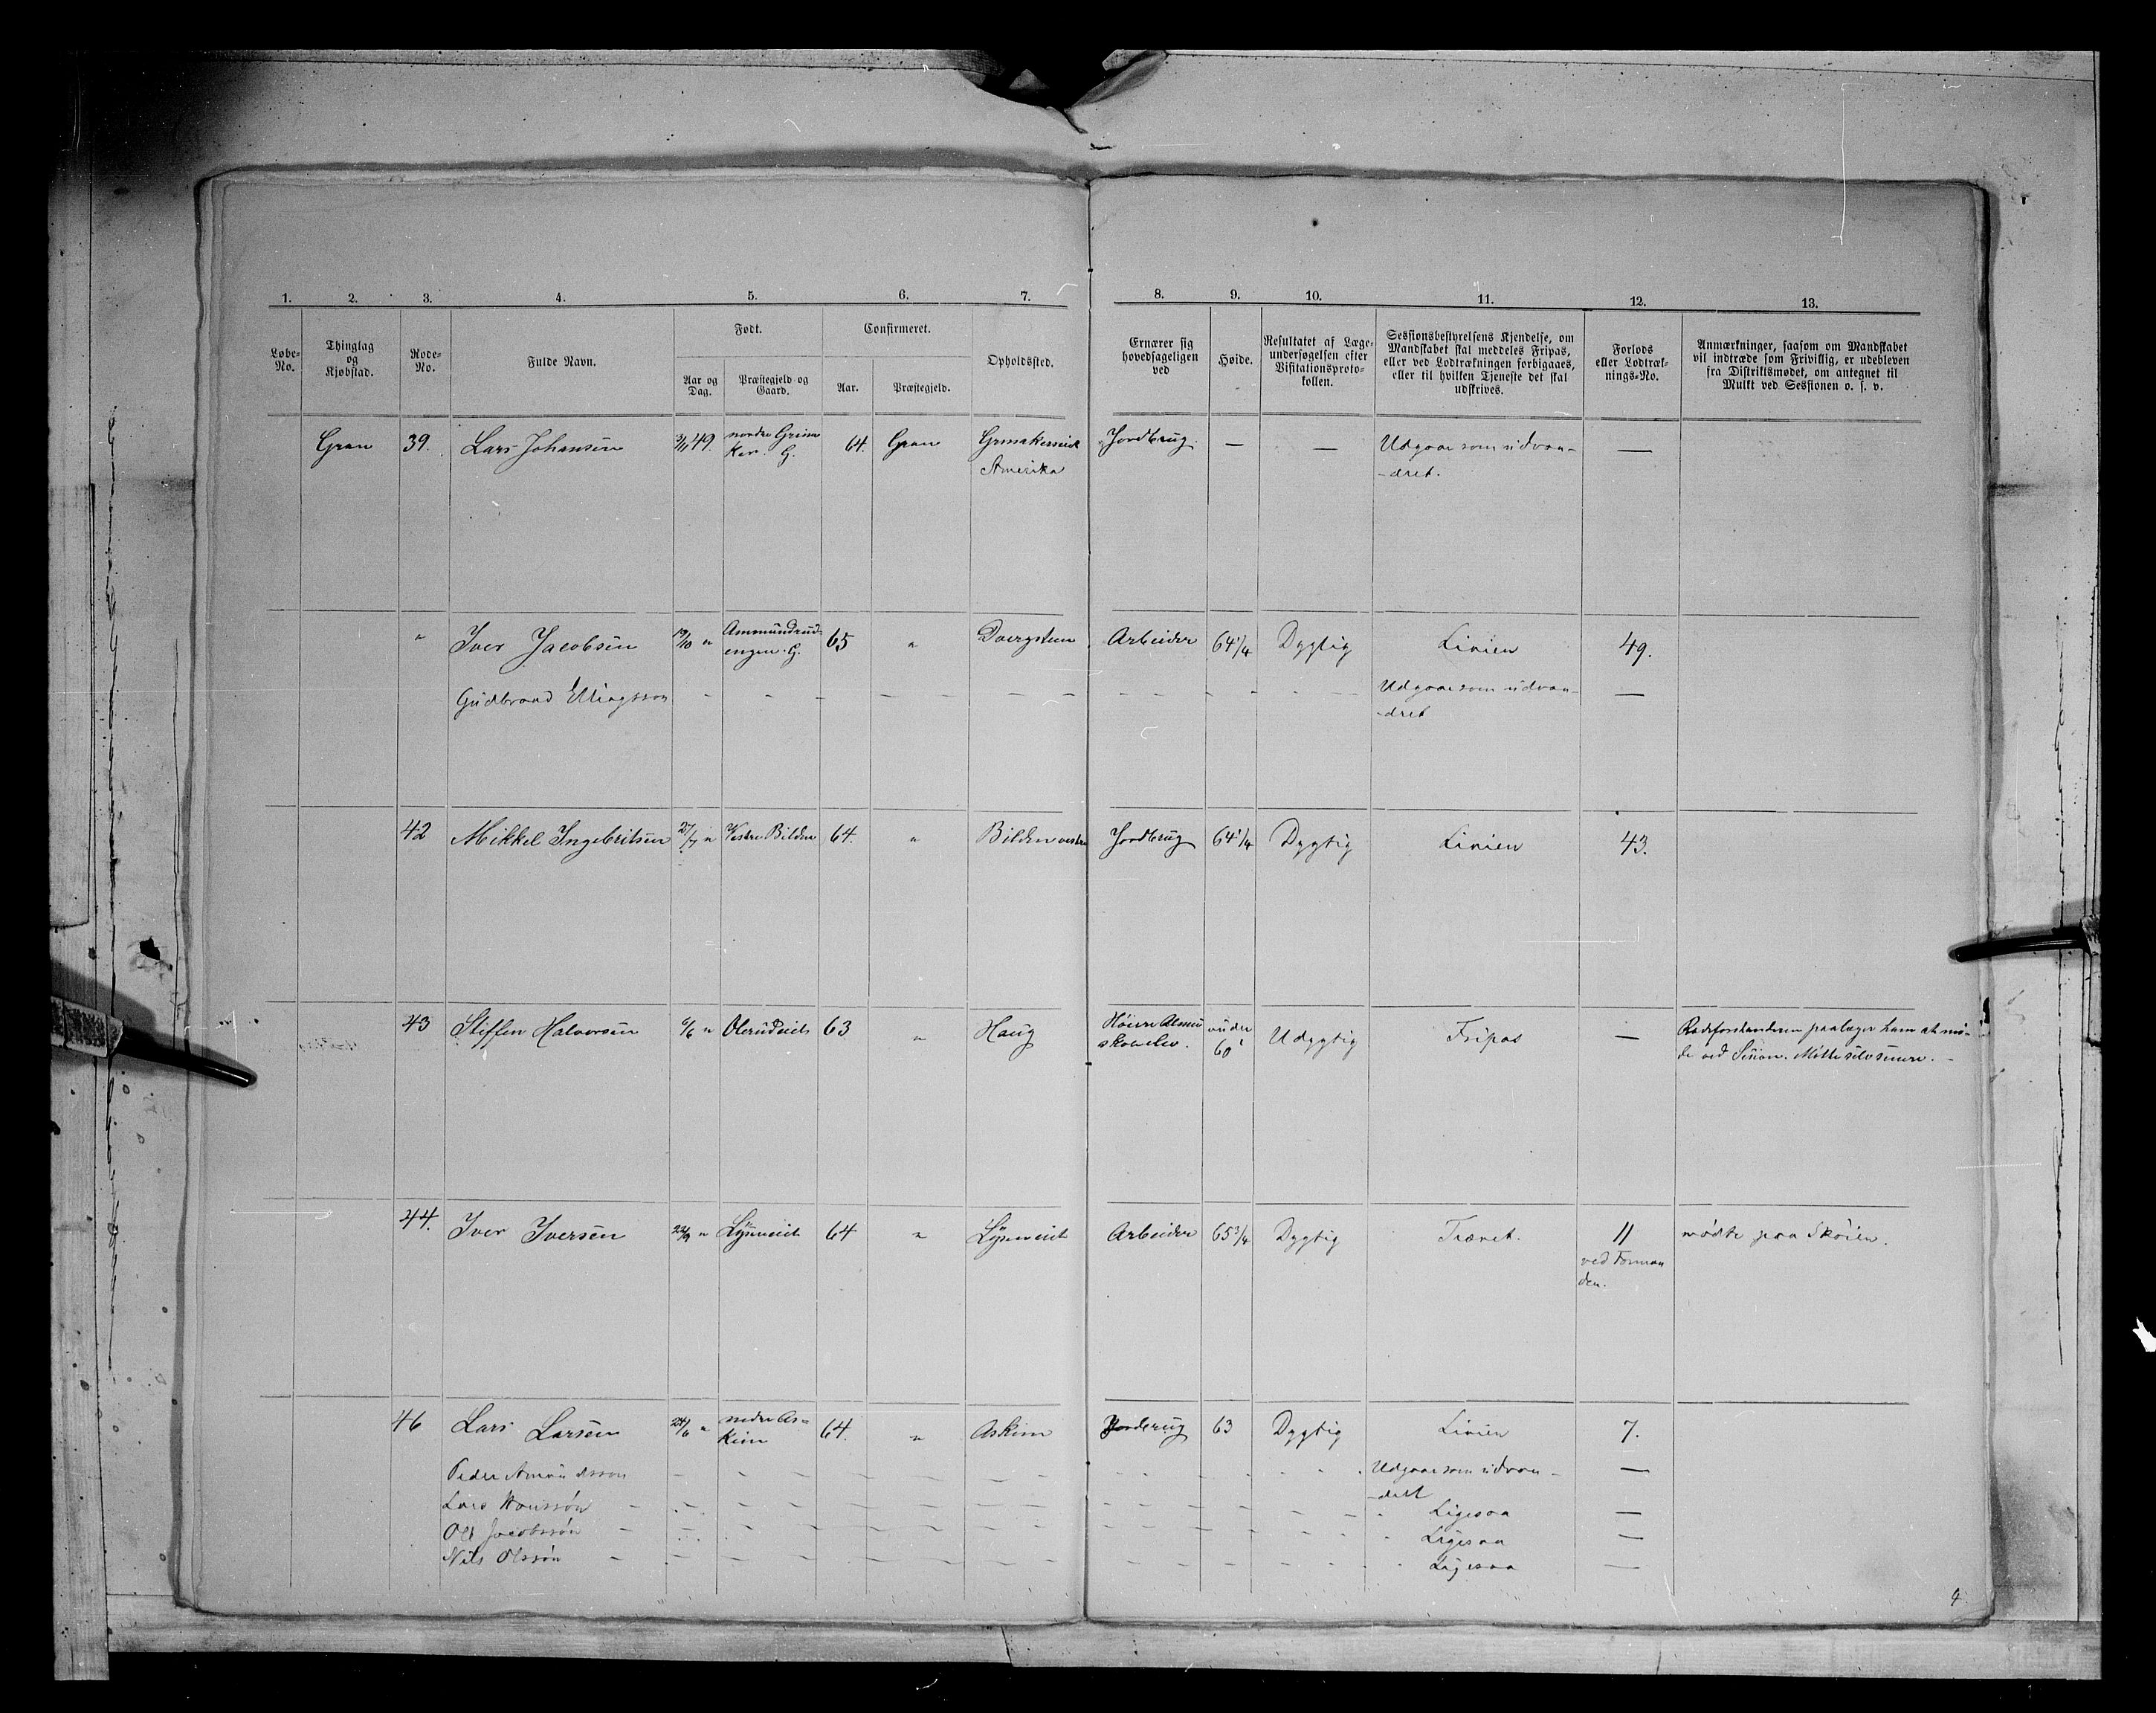 1. 2. 3. 4. 5. 6. 7. 8. 9. 10. 11. 12. 13.
Løbe-
No.
Thinglag
og
Kjøbstad.
Rode-
No.
Fulde Navn.
Født.
Aar og
Dag.
Præstegjeld og
Gaard.
Confirmeret.
Aar.
Præstegjeld.
Opholdssted.
Ernærer sig
hovedsageligen
ved
Høide.
Resultatet af Læge-
undersøgelsen efter
Visitationsproto-
kollen.
Sessionsbestyrelsens Kjendelse, om
Mandskabet skal meddeles Fripas,
eller ved Lodtrækningen forbigaaes,
eller til hvilken Tjeneste det skal
udskrives.
Forlods
eller Lodtræk-
nings-No.
Anmærkninger, saasom om Mandskabet
vil indtræde som Frivillig, er udebleven
fra Distriktsmødet, om antegnet til
Mulkt ved Sessionen o. s. v.
Gran 39. Lars Johansen 49. nordre Grina 64. Gran Jordbrug. — — Udgaar som udvan- —
ker. G. Amerika -dret.
" Iver Jacobsen 19/10 " Ammundrud- 65 " Dvergsten Arbeider 64 1/4 Dygtig Linien 49.
engen. G.
Gudbrand Ellingsson - - - - - - - - Udgaar som udvan- —
-dret
42 Mikkel Ingebritsen 27/7 " Vestre Bilden 64. " Bilden vestre Jordbrug 64 1/4 Dygtig Linien 43.
43 Steffen Halvorsen 6/6 " Olerudeiet 63 " Haug Høiere Almu under Udygtig Fripas — Rodeforstanderen paalæger ham at mø-
skoleelev. 60" de ved Session. Mødte selv senere. —
44. Iver Iversen 22/9 " Lynneeiet 64 " Lynneeiet Arbeider 65 3/4 Dygtig Trænet. 11 mødte paa Skøien.
ved Forman
den.
46 Lars Larsen 24/6 " nedre As- 64. " Askim Jordbrug 63 Dygtig Linien 7.
kim
Peder Amundsson - - - - - - - - Udgaar som udvan- —
-dret
Lars Hanssøn - - - - - - - - Ligesaa —
Ole Jacobssøn - - - - - - - - Ligesaa —
Nils Olssøn - - - - - - - - Ligesaa —
4